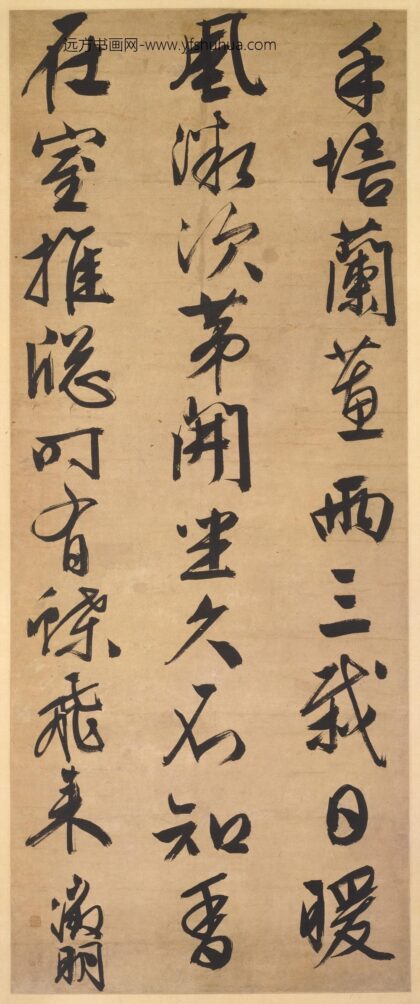 远方书画网-www.yfshuhua.com
手培蘭蕙兩三栽日暖
風微次苐開坐久不知香
在室推牕時有蝶飛来
徵明